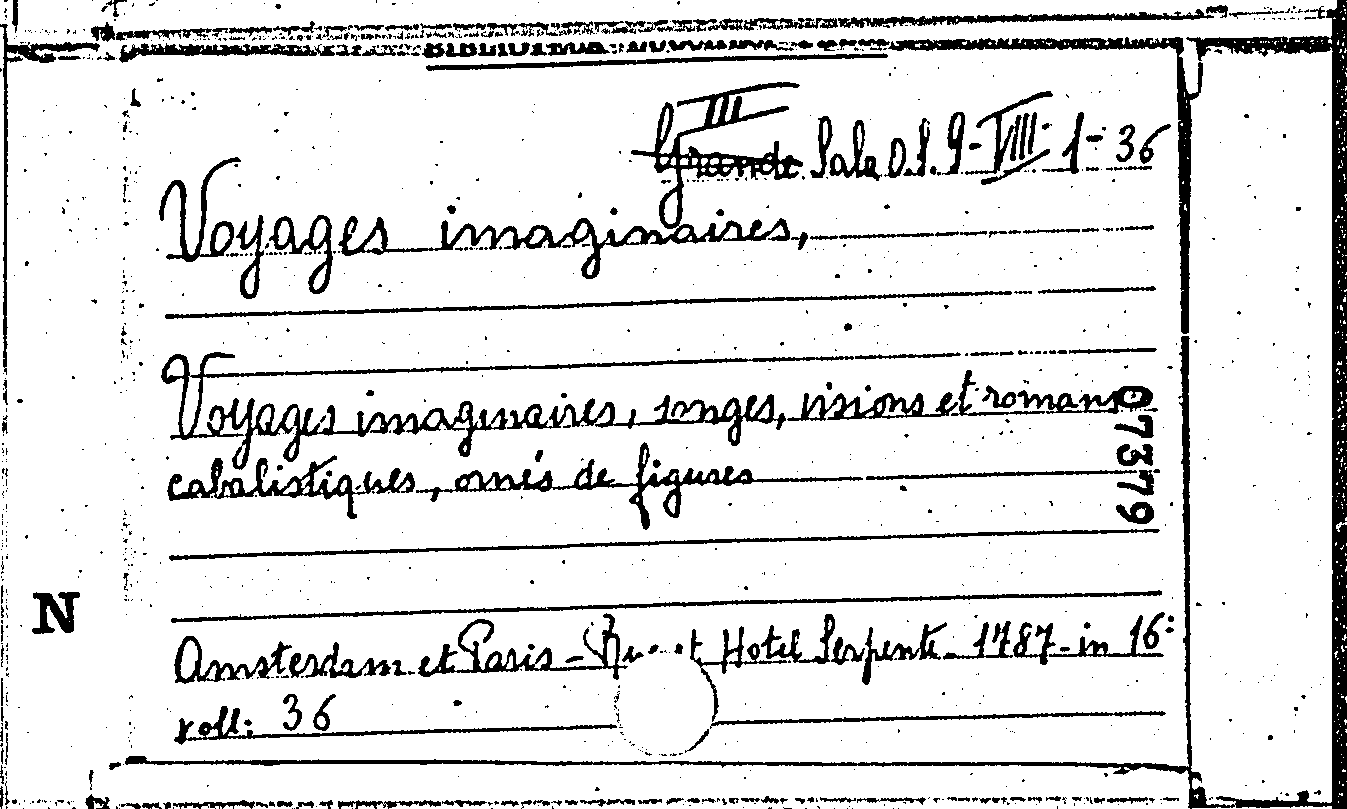 III
Grande Sala D.S. 9-VIII-1-36
Voyages imaginaires,
Voyages imaginaires, songes, visions et romans
cabalistiques, ornés de figures
07379
N
Amsterdam et Paris - Rue et Hotel Serpente - 1787 - in 16:
voll: 36